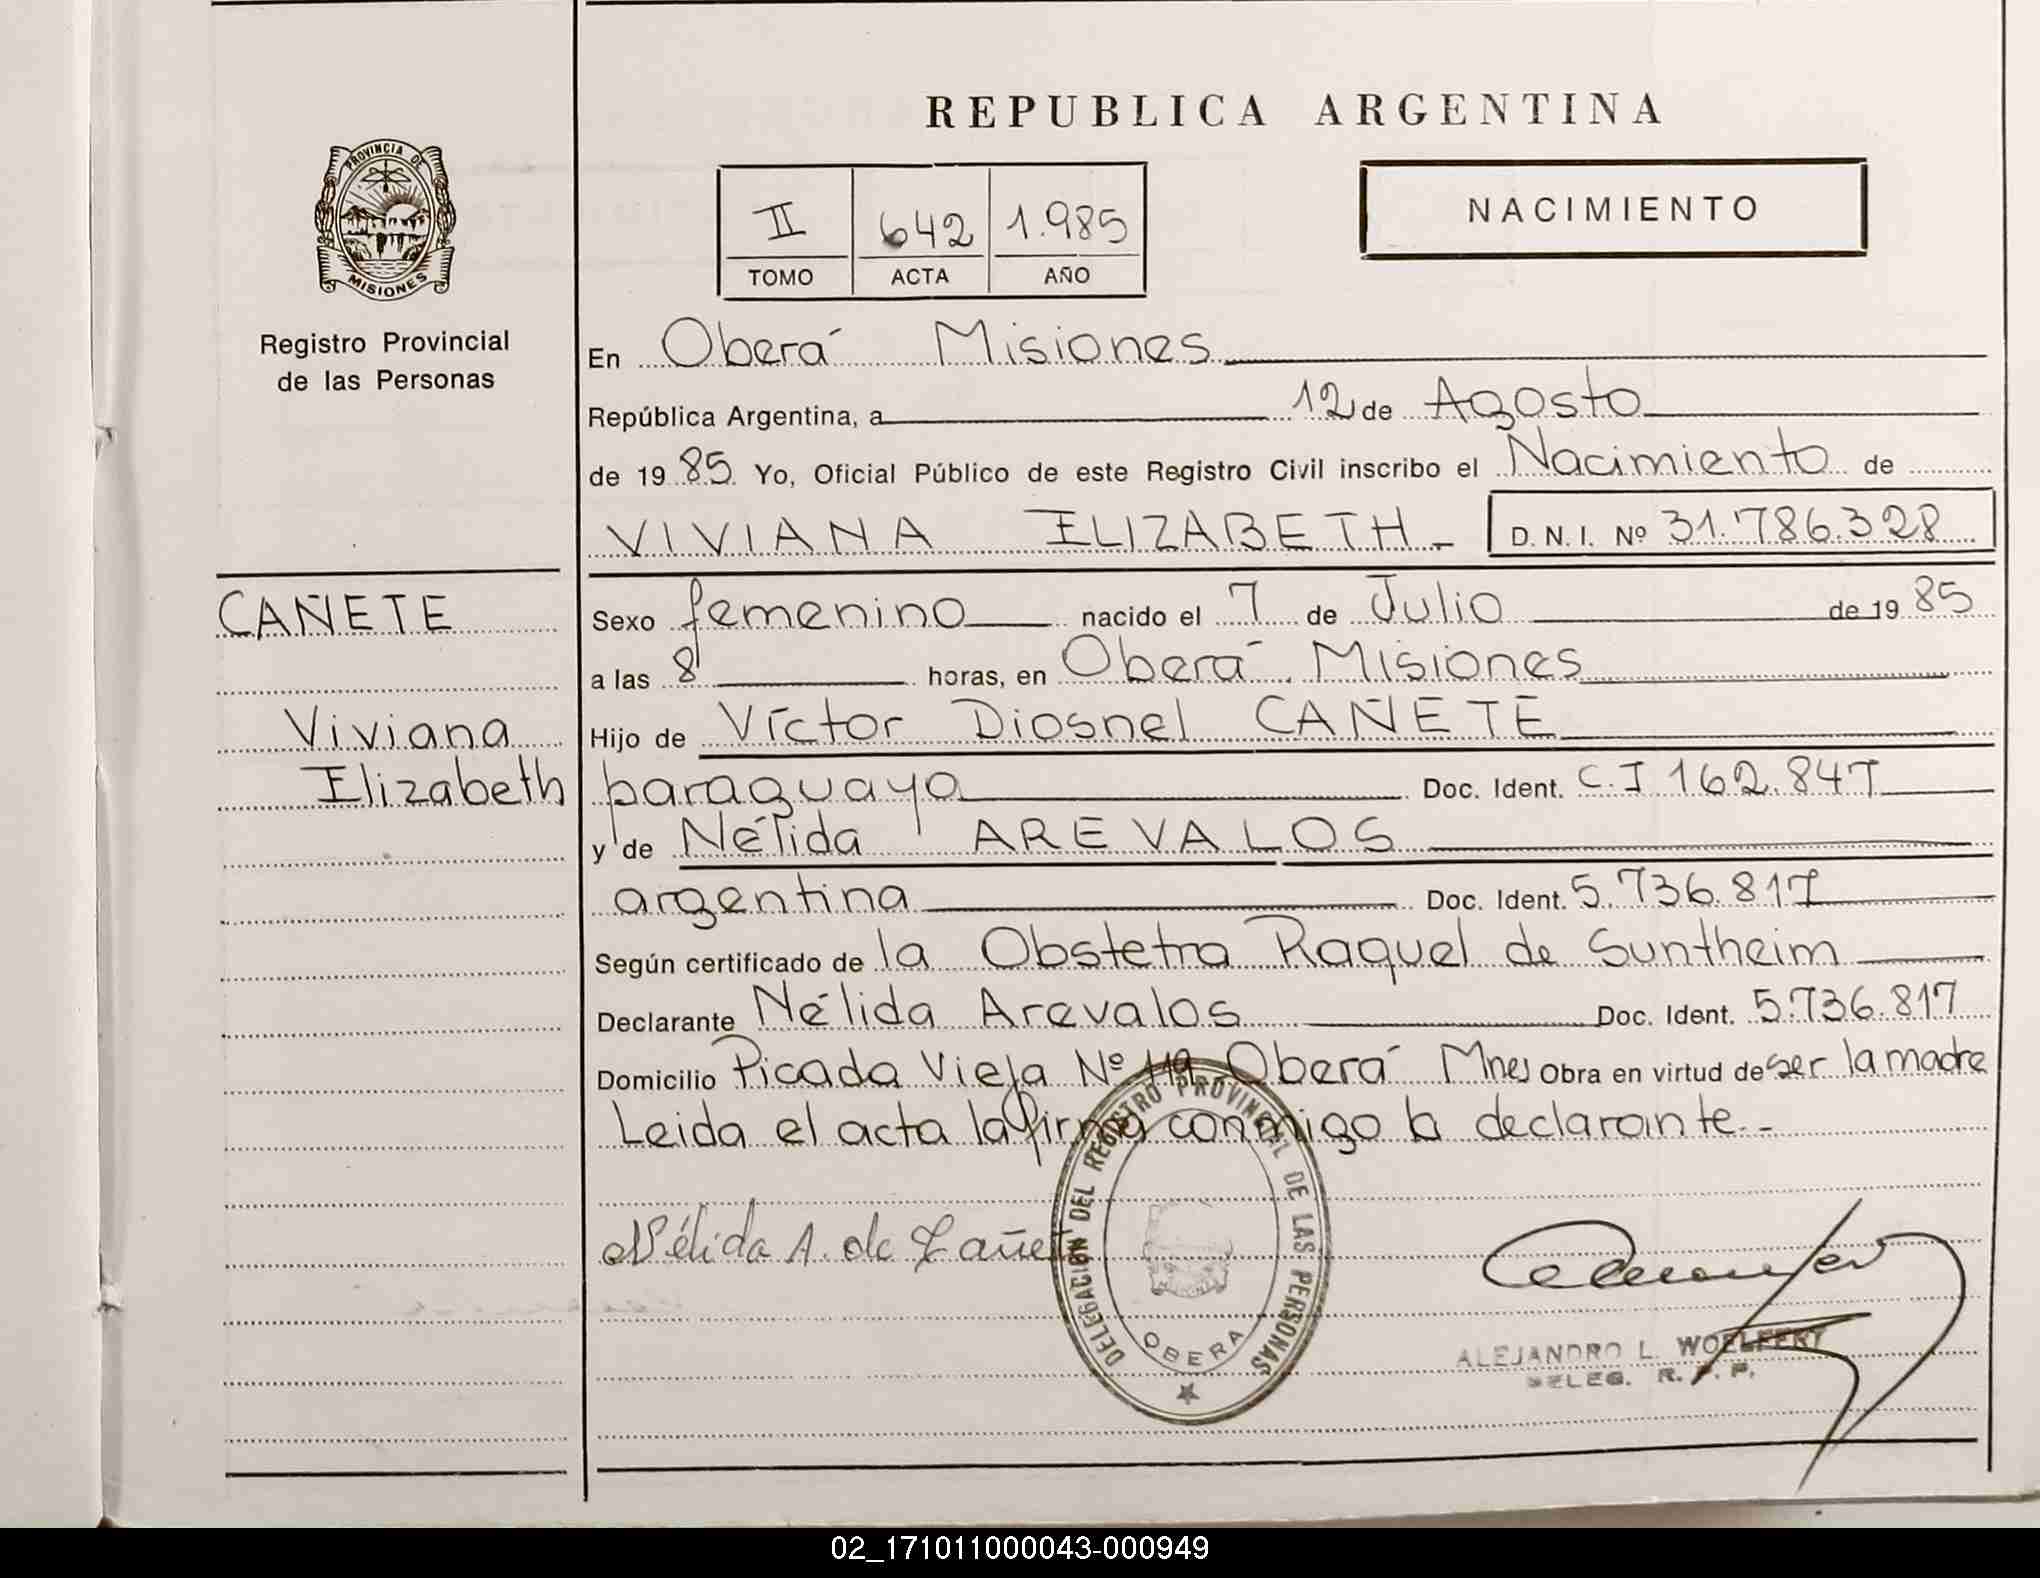 REPUBLICA ARGENTINA
PROVINCIA DE
MISIONES
Registro Provincial
de las Personas
II 642 1.985
TOMO ACTA AÑO
NACIMIENTO
En Oberá Misiones
República Argentina, a 12 de Agosto
de 19 85 Yo, Oficial Público de este Registro Civil inscribo el Nacimiento de
VIVIANA ELIZABETH D. N. I. Nº 31.786.328
CAÑETE
Viviana
Elizabeth
Sexo femenino nacido el 7 de Julio de 19 85
a las 8 horas, en Oberá Misiones
Hijo de Víctor Diosnel CAÑETE
paraguayo Doc. Ident. C.I 162.847
y de Nélida AREVALOS
argentina Doc. Ident. 5.736.817
Según certificado de la Obstetra Raquel de Suntheim
Declarante Nélida Arevalos Doc. Ident. 5.736.817
Domicilio Picada Vieja Nº 119 Oberá Mnes Obra en virtud de ser la madre
Leida el acta la firma conmigo la declarante.-
Nélida A. de Cañete
DELEGACION DEL REGISTRO PROVINCIAL DE LAS PERSONAS
OBERA
ALEJANDRO L. WOELFERT
DELEG. R. P. P.
02_171011000043-000949